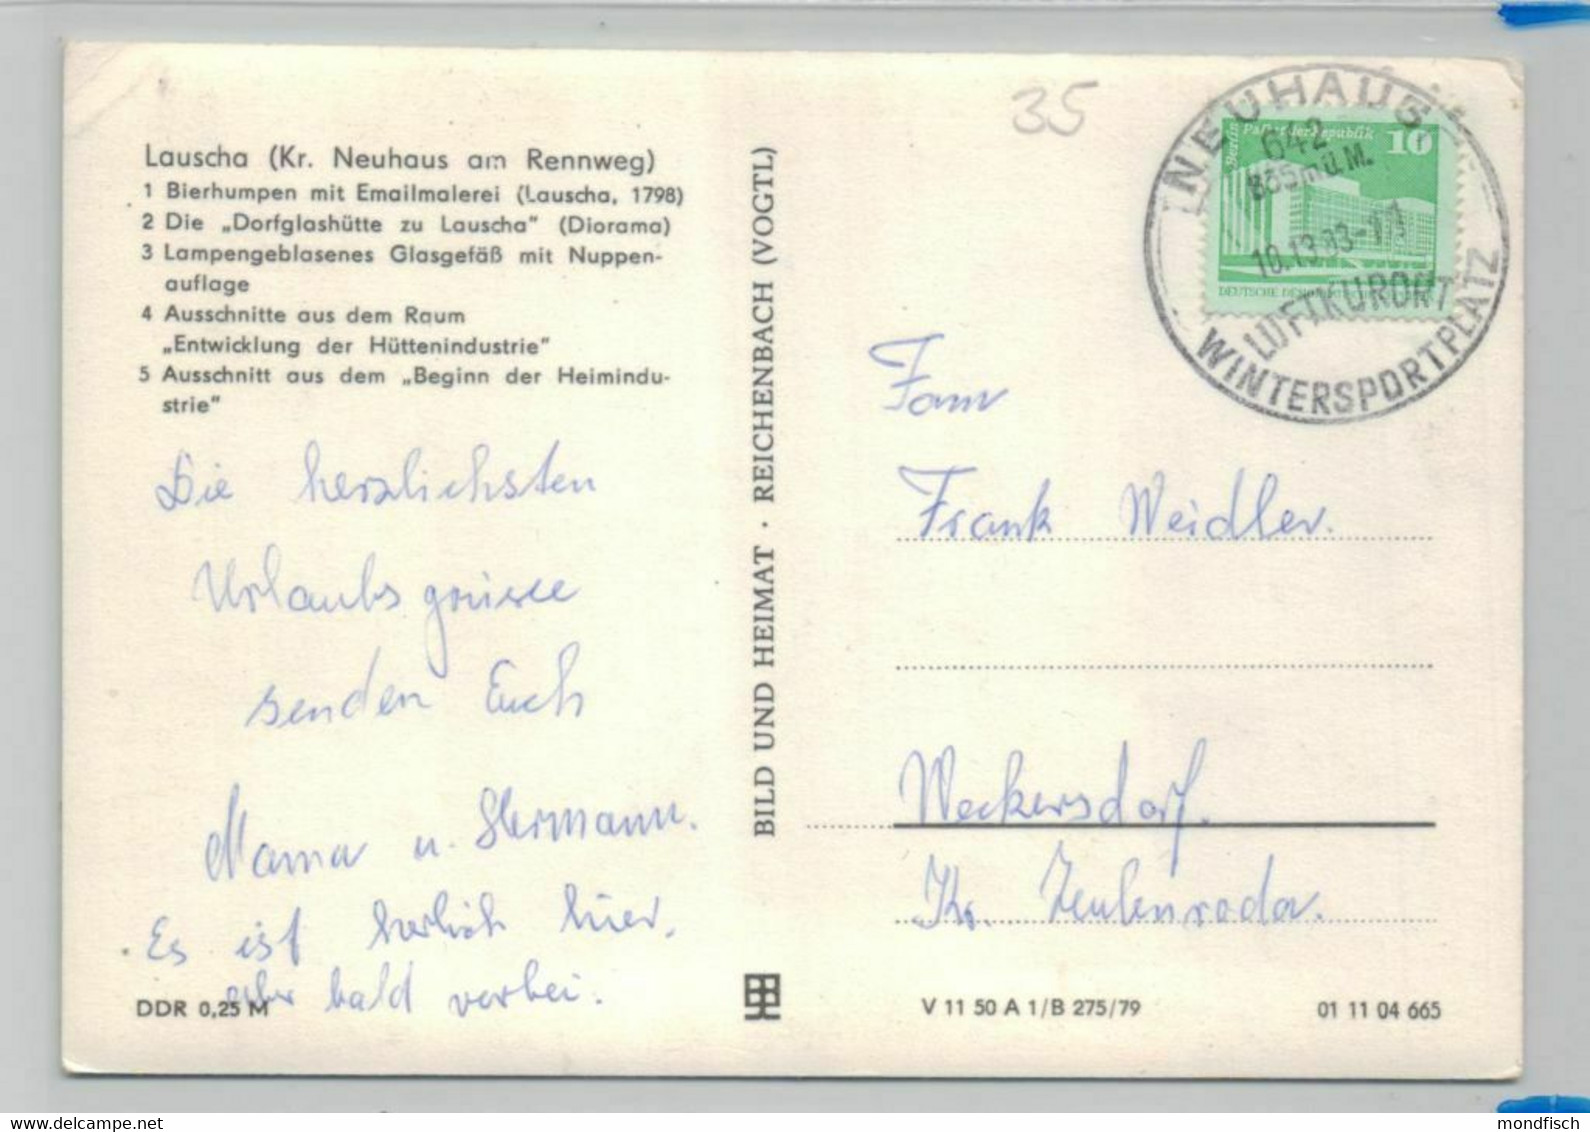 35
Lauscha (Kr. Neuhaus am Rennweg)
1 Bierhumpen mit Emailmalerei (Lauscha, 1798)
2 Die „Dorfglashütte zu Lauscha" (Diorama)
3 Lampengeblasenes Glasgefäß mit Nuppen-
auflage
4 Ausschnitte aus dem Raum
„Entwicklung der Hüttenindustrie"
5 Ausschnitt aus dem „Beginn der Heimindu-
strie"
Die herzlichsten
Urlaubsgrüsse
senden Euch
Mama u. Hermann.
Es ist herlich hier,
aber bald vorbei.
DDR 0,25 M
BILD UND HEIMAT · REICHENBACH (VOGTL)
NEUHAUS
642
835m ü.M.
LUFTKURORT
WINTERSPORTPLATZ
Berlin Palast der Republik 10
Fam
Frank Weidler.
Weckersdorf.
Kr. Zeulenroda.
V 11 50 A 1/B 275/79
01 11 04 665
delcampe.net
mondfisch